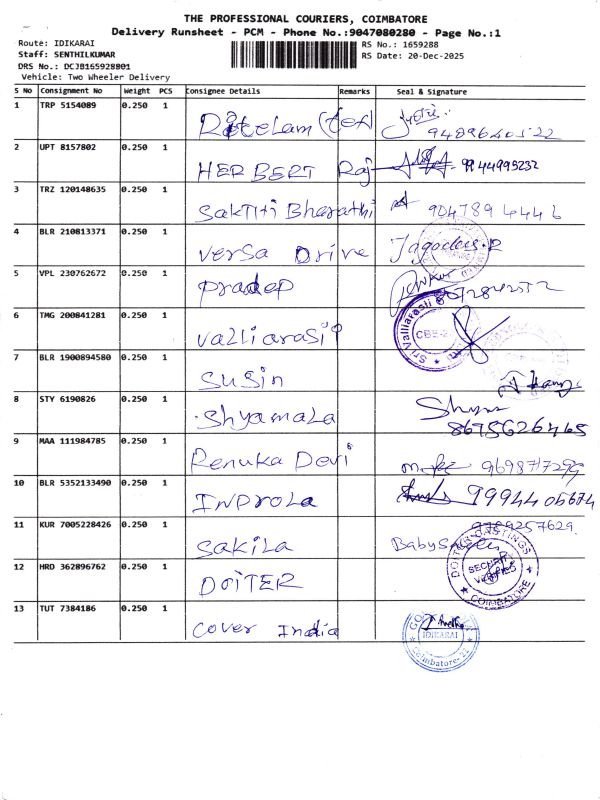 THE PROFESSIONAL COURIERS, COIMBATORE
Delivery Runsheet - PCM - Phone No.:9047080280 - Page No.:1
Route: IDIKARAI
Staff: SENTHILKUMAR
DRS No.: DCJB165928801
Vehicle: Two Wheeler Delivery
RS No.: 1659288
RS Date: 20-Dec-2025
S No Consignment No Weight PCS Consignee Details Remarks Seal & Signature
1 TRP 5154089 0.250 1
2 UPT 8157802 0.250 1 HERBERT Raj 9944995232
3 TRZ 120148635 0.250 1 Sakthi Bharathi 904789 4446
4 BLR 210813371 0.250 1 versa Drive
5 VPL 230762672 0.250 1 pradep
6 TMG 200841281 0.250 1 valliarasi Sri Valliarasi CBE-2
7 BLR 1900894580 0.250 1 Susin
8 STY 6190826 0.250 1 Shyamala 8675626465
9 MAA 111984785 0.250 1 Renuka Devi
10 BLR 5352133490 0.250 1 INprola 9994405674
11 KUR 7005228426 0.250 1 Sakila 9789257629
12 HRD 362896762 0.250 1 DOITER DOITER CASTINGS SECURITY COIMBATORE
13 TUT 7384186 0.250 1 Cover India IDIKARAI Coimbatore-22